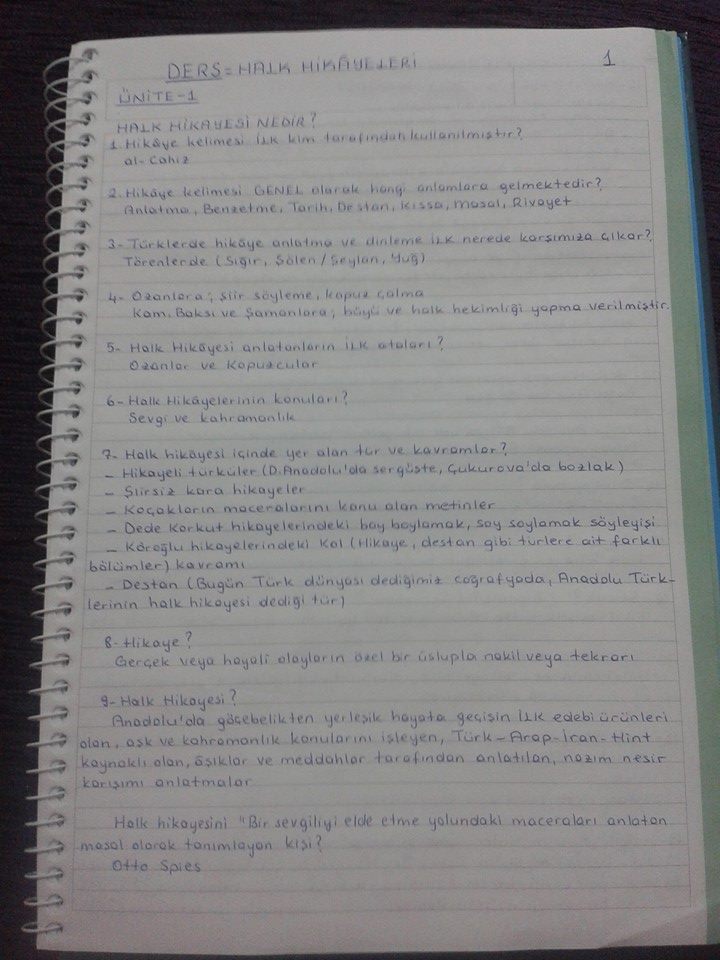 DERS = HALK HİKÂYELERİ
1
ÜNİTE-1
HALK HİKAYESİ NEDİR?
1. Hikâye kelimesi İLK kim tarafından kullanılmıştır?
al-Cahiz
2. Hikâye kelimesi GENEL olarak hangi anlamlara gelmektedir?
Anlatma, Benzetme, Tarih, Destan, Kıssa, Masal, Rivayet
3- Türklerde hikâye anlatma ve dinleme İLK nerede karşımıza çıkar?
Törenlerde (Sığır, Şölen / Şeylan, Yuğ)
4- Ozanlara; şiir söyleme, kopuz çalma
Kam, Baksı ve Şamanlara; büyü ve halk hekimliği yapma verilmiştir.
5- Halk Hikâyesi anlatanların İLK ataları?
Ozanlar ve Kopuzcular
6- Halk Hikâyelerinin konuları?
Sevgi ve kahramanlık
7- Halk hikâyesi içinde yer alan tür ve kavramlar?
- Hikayeli türküler (D. Anadolu'da sergüşte, Çukurova'da bozlak)
- Şiirsiz kara hikayeler
- Koçakların maceralarını konu alan metinler
- Dede Korkut hikayelerindeki boy boylamak, soy soylamak söyleyişi
- Köroğlu hikayelerindeki Kol (Hikaye, destan gibi türlere ait farklı
bölümler) kavramı
- Destan (Bugün Türk dünyası dediğimiz coğrafyada, Anadolu Türk-
lerinin halk hikayesi dediği tür)
8- Hikaye?
Gerçek veya hayali olayların özel bir üslupla nakil veya tekrarı
9- Halk Hikayesi?
Anadolu'da göçebelikten yerleşik hayata geçişin İLK edebi ürünleri
olan, aşk ve kahramanlık konularını işleyen, Türk-Arap-İran-Hint
kaynaklı olan, âşıklar ve meddahlar tarafından anlatılan, nazım nesir
karışımı anlatmalar
Halk hikayesini "Bir sevgiliyi elde etme yolundaki maceraları anlatan
masal olarak tanımlayan kişi?
Otto Spies